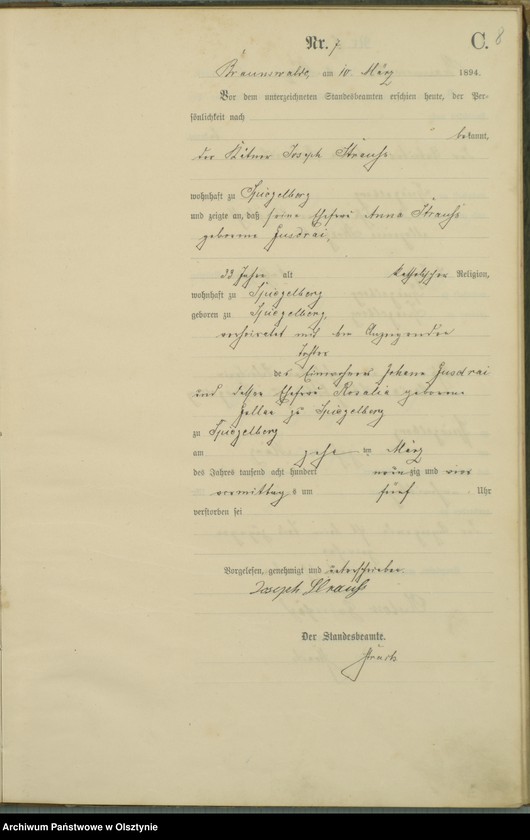 Nr. 7
C. 8
Braunswalde, am 10. März 1894.
Vor dem unterzeichneten Standesbeamten erschien heute, der Per-
sönlichkeit nach
bekannt,
der Kätner Joseph Strauß
wohnhaft zu Spiegelberg
und zeigte an, daß seine Ehefrau Anna Strauß
geborene Gusdrai,
33 Jahre alt katholischer Religion,
wohnhaft zu Spiegelberg
geboren zu Spiegelberg,
verheiratet mit dem Anzeigenden
Tochter
des Einwohners Johann Gusdrai
und dessen Ehefrau Rosalia geborene
zu Spiegelberg
zu Spiegelberg
am zehn ten März
des Jahres tausend acht hundert neunzig und vier
vormittags um fünf Uhr
verstorben sei
Vorgelesen, genehmigt und unterschrieben.
Joseph Strauß
Der Standesbeamte.
Archiwum Państwowe w Olsztynie